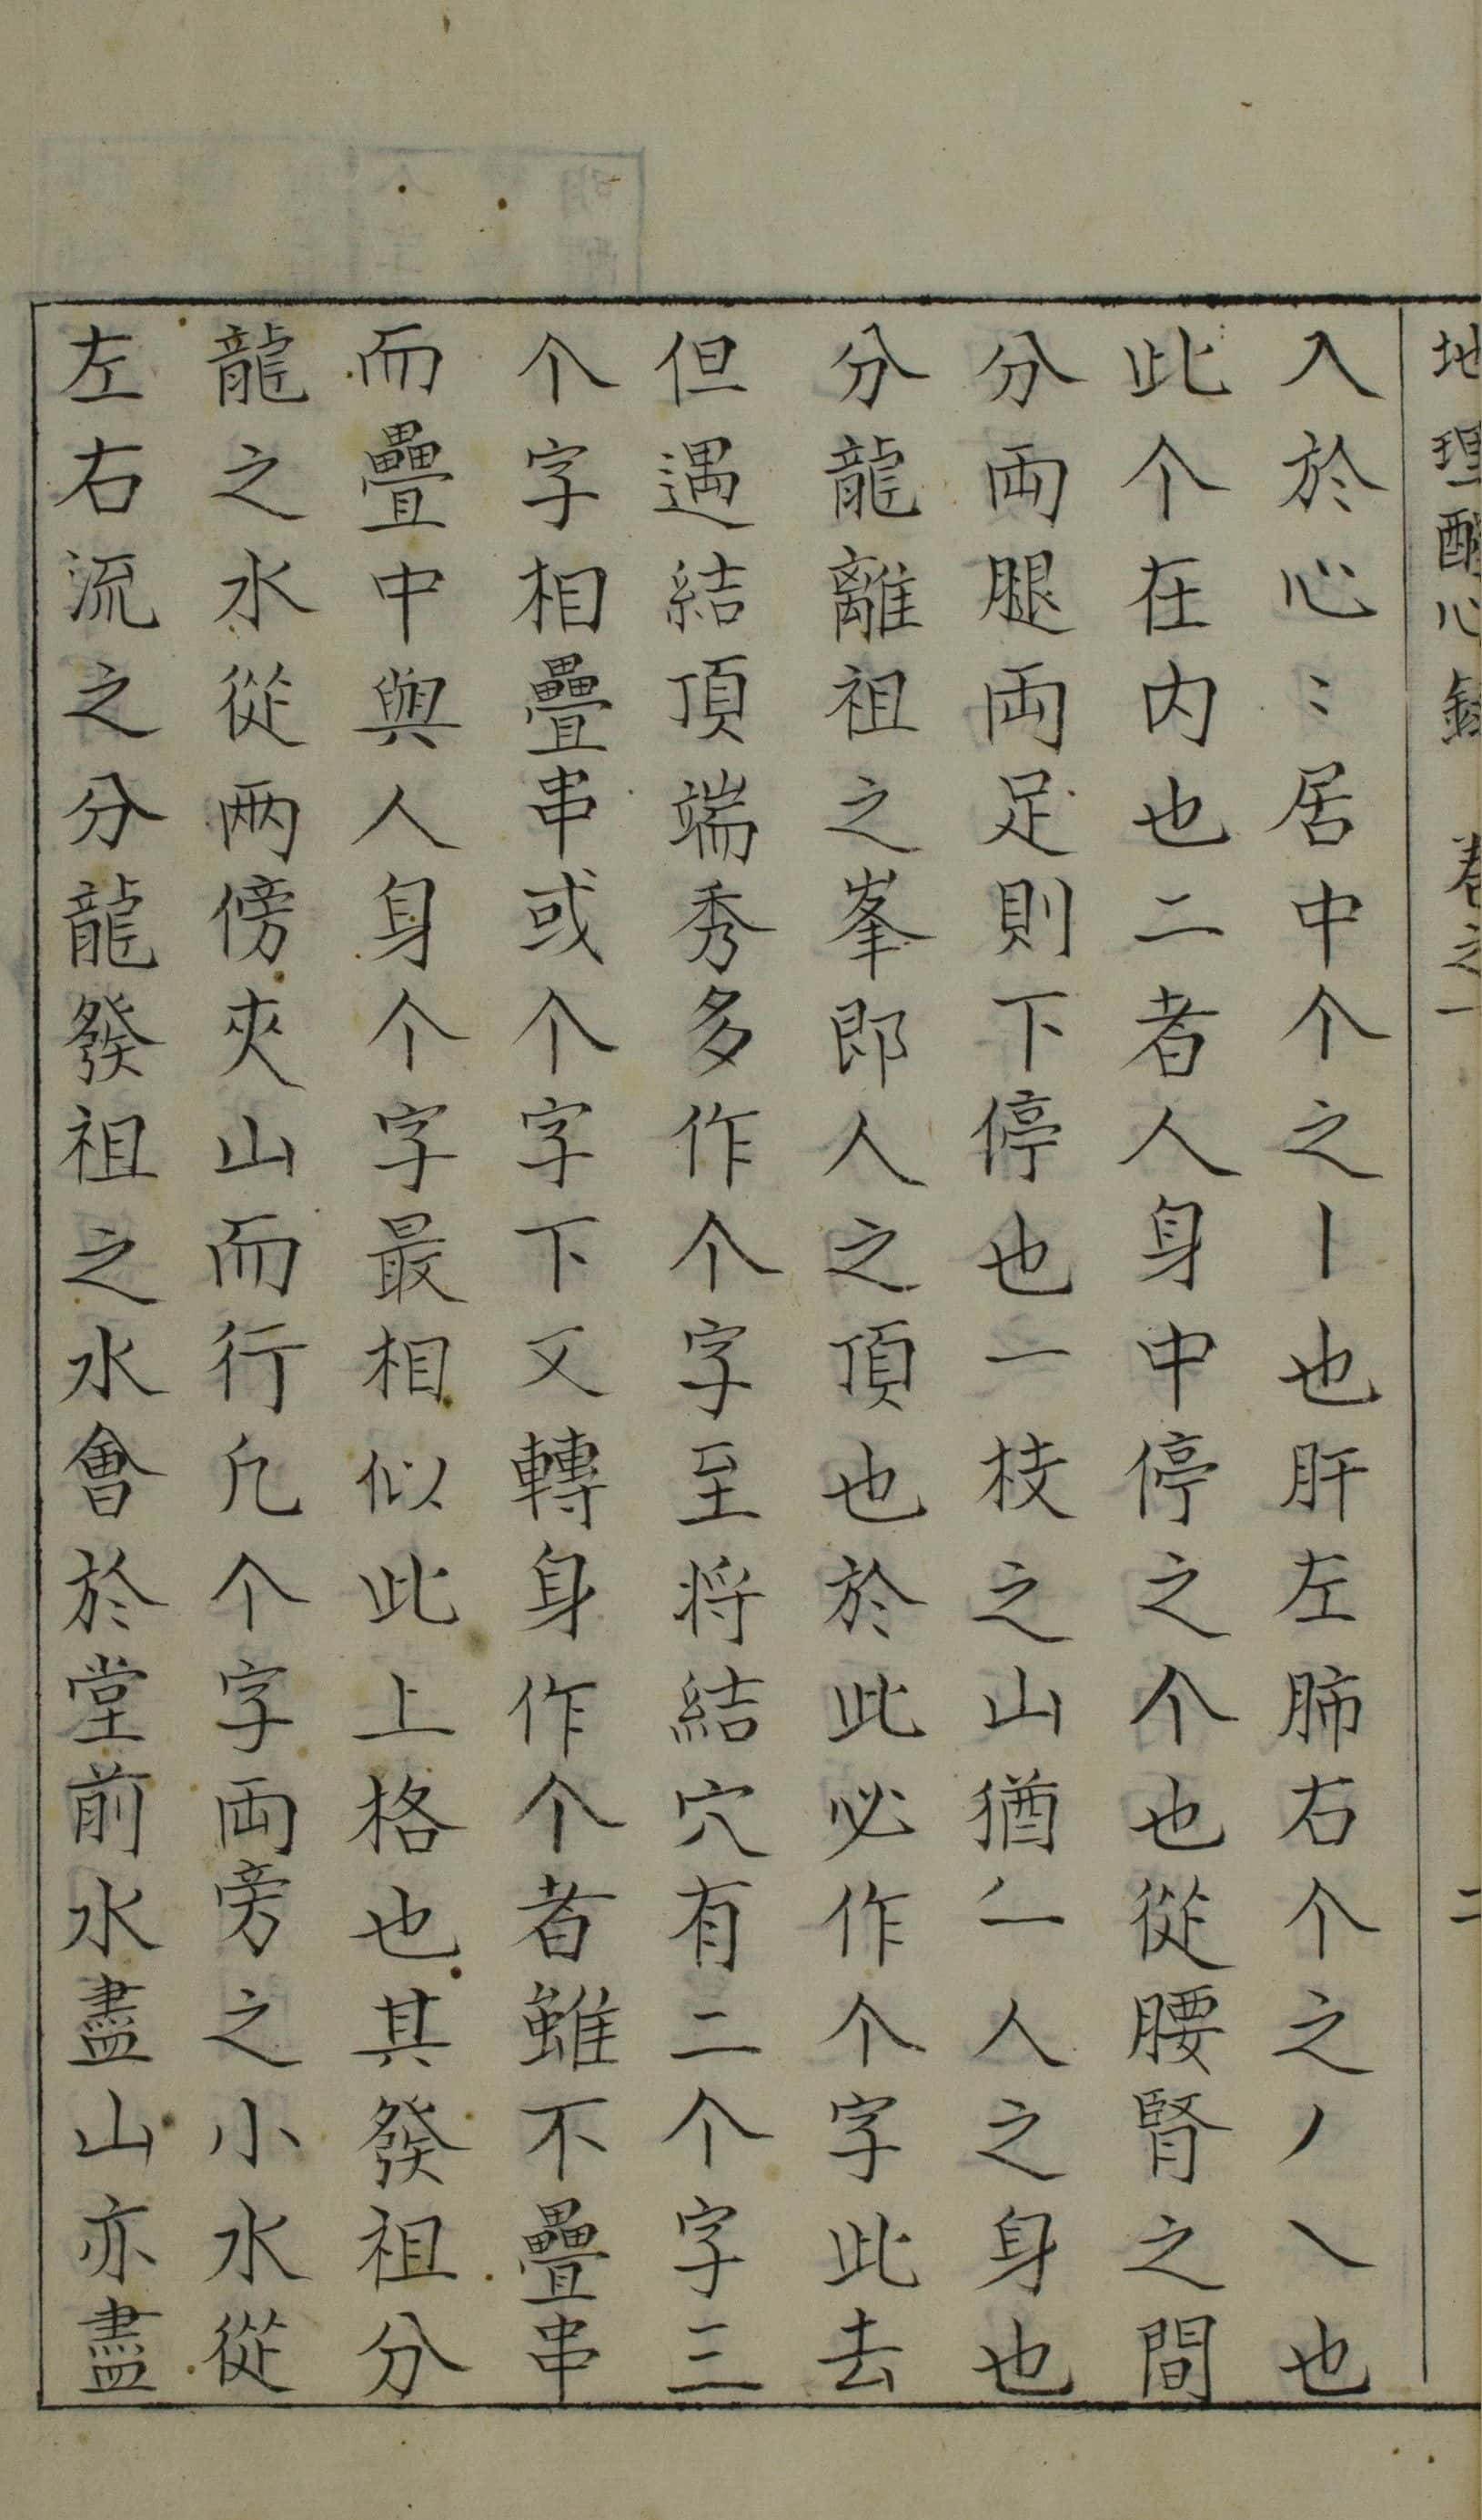 地理醒心錄　卷之一　二
入於心〻居中个之丨也肝左肺右个之丿乀也
此个在内也二者人身中停之个也從腰腎之間
分両腿両足則下停也一枝之山猶一人之身也
分龍離祖之峯即人之頂也於此必作个字此去
但遇結頂端秀多作个字至将結穴有二个字三
个字相疊串或个字下又轉身作个者雖不疊串
而疊中與人身个字最相似此上格也其發祖分
龍之水從两傍夾山而行凢个字両旁之小水從
左右流之分龍發祖之水會於堂前水盡山亦盡